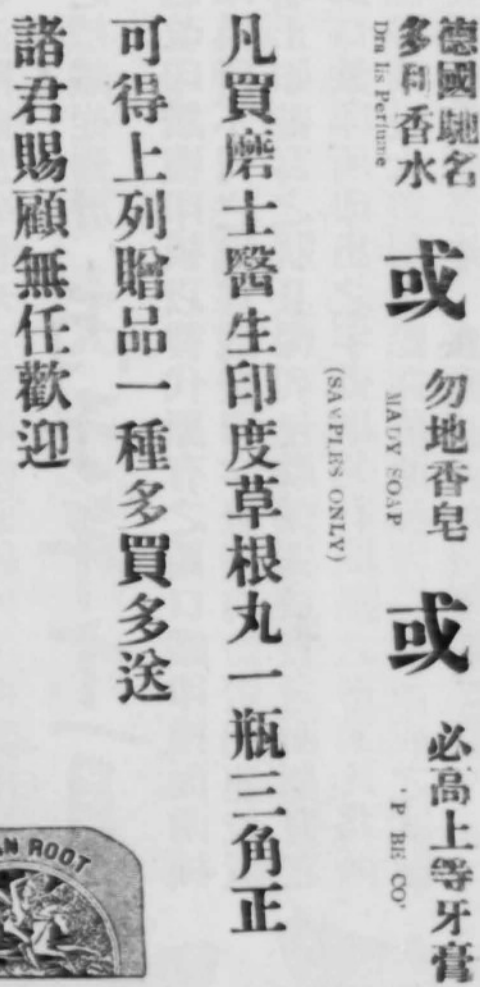 德國馳名
多利香水
Dra lis Perfume
或
勿地香皂
MADY SOAP
或
必高上等牙膏
P BE CO'
(SAMPLES ONLY)
凡買磨士醫生印度草根丸一瓶三角正
可得上列贈品一種多買多送
諸君賜顧無任歡迎
N ROOT